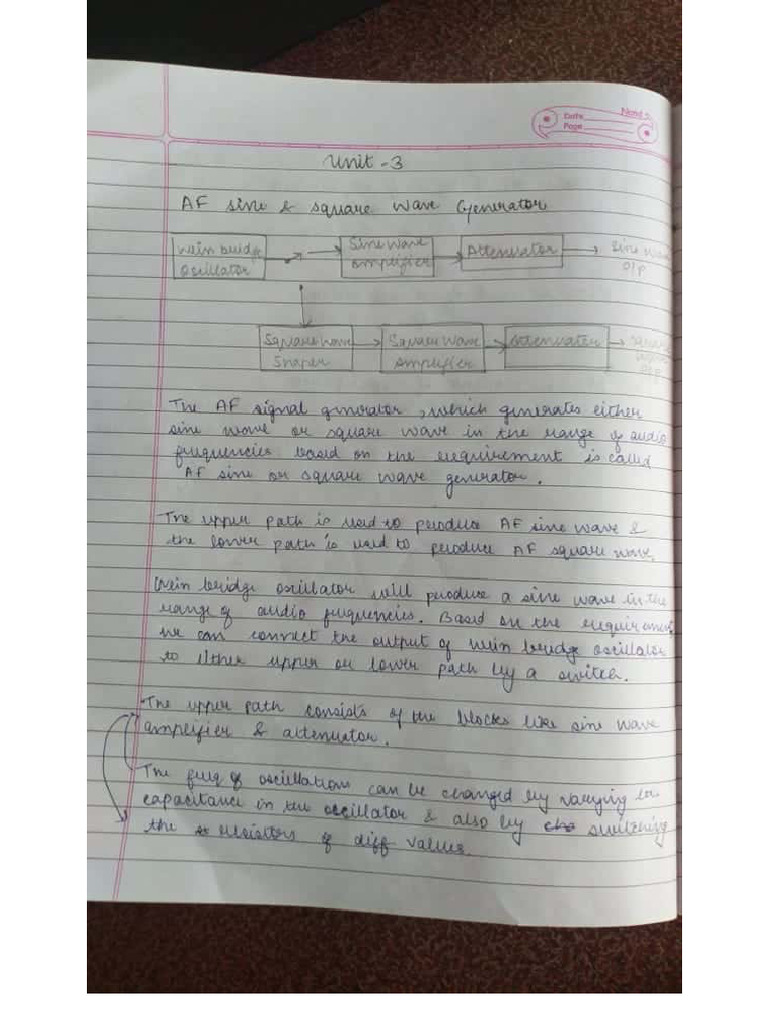 Nand
Date
Page
Unit - 3
AF sine & square wave Generator
Wein bridge oscillator
Sine wave amplifier
Attenuator
Sine wave O/P
Square wave Shaper
Square Wave Amplifier
Attenuator
Square wave O/P
The AF signal generator, which generates either
sine wave or square wave in the range of audio
frequencies based on the requirement is called
AF sine or square wave generator.
The upper path is used to produce AF sine wave &
the lower path is used to produce AF square wave.
Wein bridge oscillator will produce a sine wave in the
range of audio frequencies. Based on the requirement
we can connect the output of wein bridge oscillator
to either upper or lower path by a switch.
The upper path consists of the blocks like sine wave
amplifier & attenuator.
The freq of oscillations can be changed by varying the
capacitance in the oscillator & also by switching
the resistors of diff values.